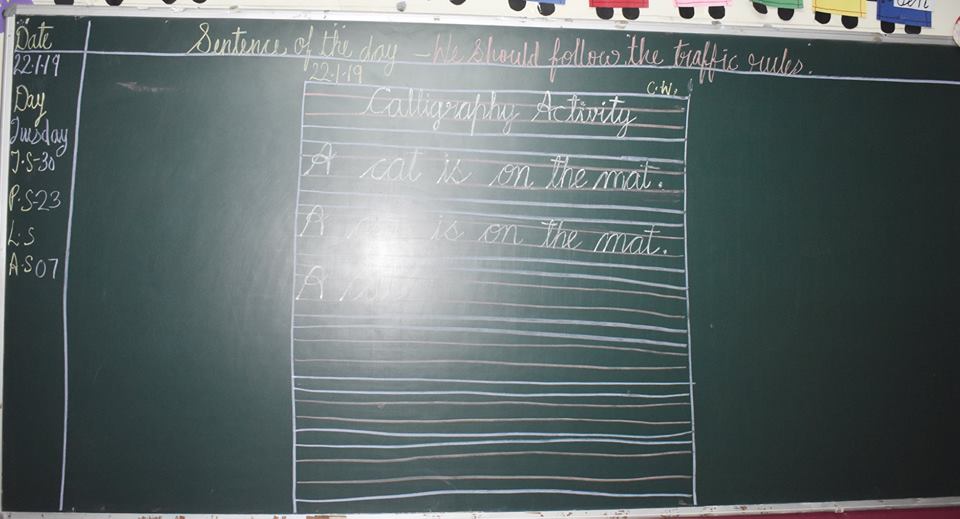 Date
22.1.19
Day
Tuesday
T.S-30
P.S-23
L.S
A.S 07
Sentence of the day - We should follow the traffic rules.
22.1.19
C.W.
Calligraphy Activity
A cat is on the mat.
A cat is on the mat.
A cat